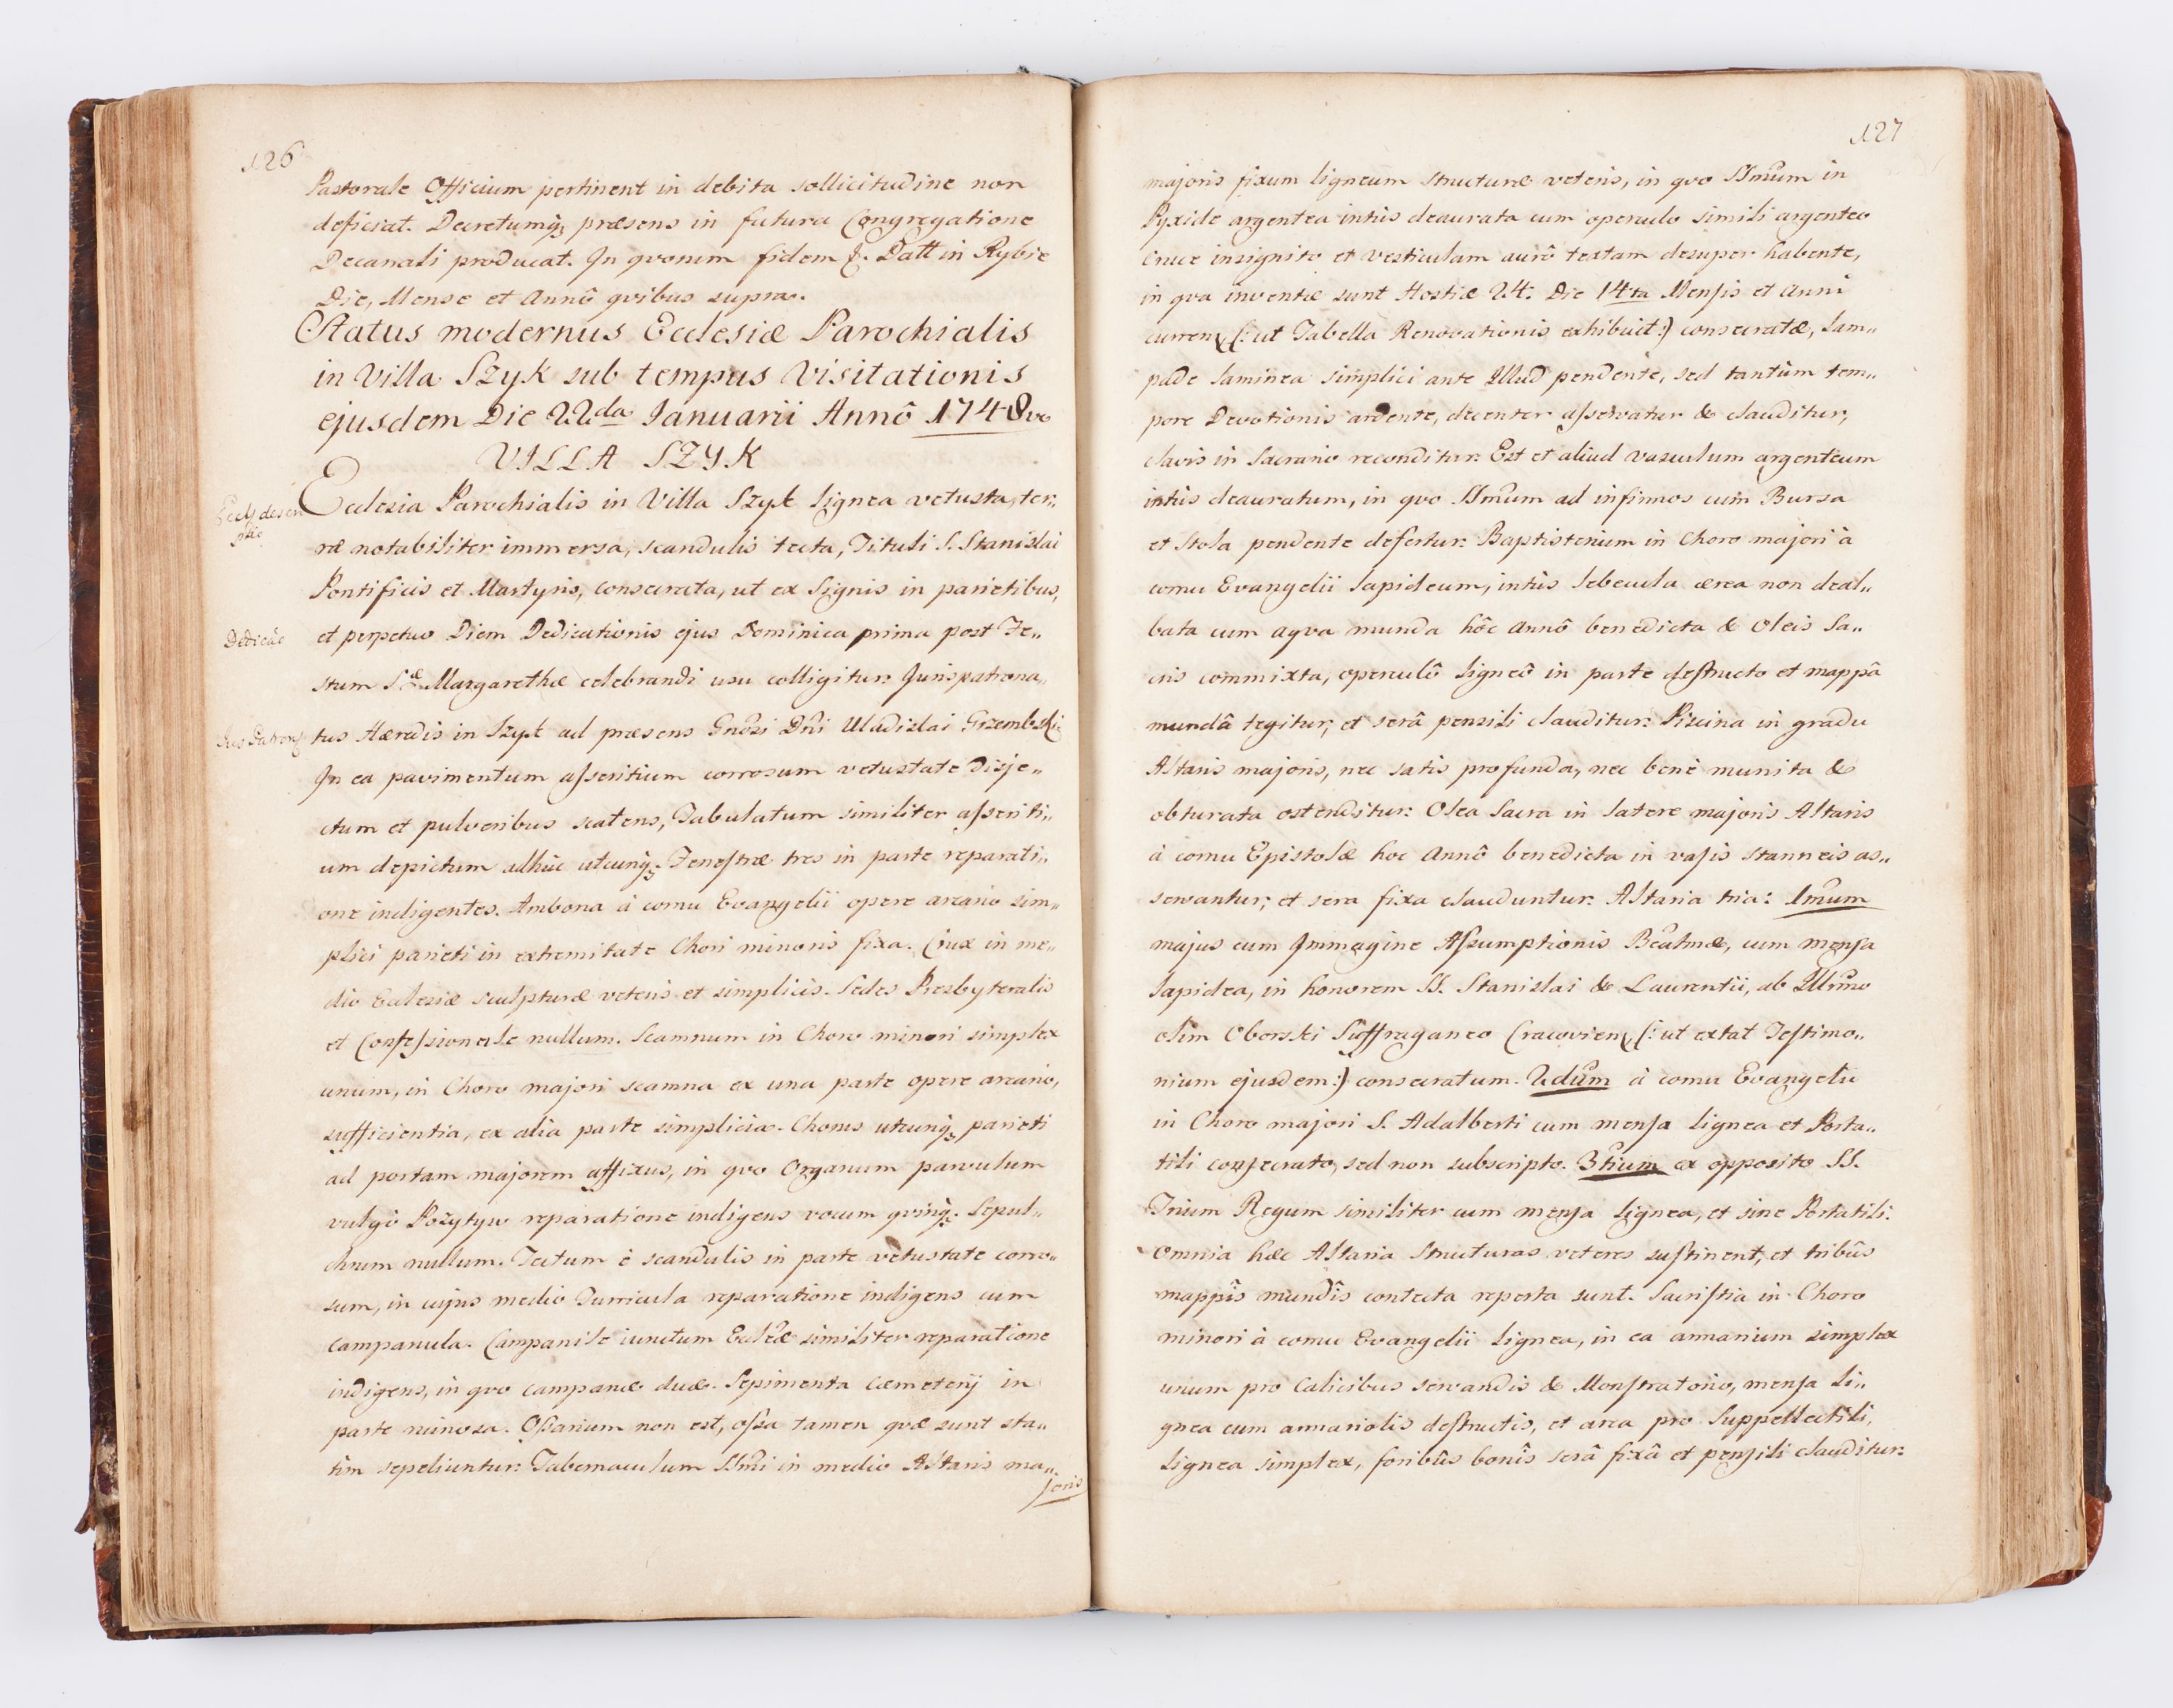 126
Pastorale Officium pertinent in debita sollicitudine non
deficiat. Decretumq; præsens in futura Congregatione
Decanali producat. In quorum fidem &. Datt in Rybie
Die, Mense et Annô quibus supra.
Status modernus Ecclesiæ Parochialis
in Villa Szyk sub tempus Visitationis
ejusdem Die 22da Januarii Annô 1748vo
VILLA SZYK
Ecclesia Parochialis in Villa Szyk lignea vetusta, ter„
ræ notabiliter immersa, scandulis tecta, Tituli S. Stanislai
Pontificis et Martyris, consecrata, ut ex Signis in parietibus,
Dedicāe
et perpetuo Diem Dedicationis ejus Dominica prima post Fe„
stum S.æ Margarethæ celebrandi usu colligitur: Jurispatrona„
Jus Patrong
tus Hæredis in Szyk ad præsens Gnōsi Dn̄i Uladislai Grzembski
In ea pavimentum asseritium corrosum vetustate disje„
ctum et pulveribus scatens, Tabulatum similiter asseriti„
um depictum adhuc utcunq; Fenestræ tres in parte reparati„
one indigentes. Ambona à cornu Evangelii opere arcario sim„
plici parieti in extremitate Chori minoris fixa. Crux in me„
dio Ecclesiæ sculpturæ veteris et simplicis. Sedes Presbyteralis
et Confessionale nullum. Scamnum in Choro minori simplex
unum, in Choro majori scamna ex una parte opere arcario,
sufficientia, ex alia parte simplicia. Chorus utcunq; parieti
ad portam majorem affixus, in quo Organum parvulum
vulgò Pozytyw reparatione indigens vocum quinq;. Sepul„
chrum nullum. Tectum è scandulis in parte vetustate corro„
sum, in cujus medio Turricula reparatione indigens cum
campanula. Campanile iunctum Eccl̄æ similiter reparatione
indigens, in quo campanæ duæ. Sepimenta Cæmeterij in
parte ruinosa. Ossarium non est, ossa tamen quæ sunt sta„
tim sepeliuntur: Tabernaculum SSmi in medio Altaris ma„
joris
127
majoris fixum ligneum structuræ veteris, in quo SSmum in
Pyxide argentea intùs deaurata cum operculo simili argenteo
Cruce insignito et vesticulam aurô textam desuper habente,
in qua inventæ sunt Hostiæ 24. Die 14ta Mensis et Anni
curren (: ut Tabella Renovationis exhibuit:) consecratæ, Lam„
pade laminea simplici ante Illud pendente, sed tantùm tem„
pore Devotionis ardente, decenter asservatur & clauditur,
clavis in Sacrario reconditur: Est et aliud vasculum argenteum
intùs deauratum, in quo SSmum ad infirmos cum Bursa
et Stola pendente defertur: Baptisterium in Choro majori à
cornu Evangelii lapideum, intùs lebecula ærea non deal„
bata cum aqua munda hôc Annô benedicta & Oleis Sa„
cris commixta, operculô ligneô in parte destructo et mappâ
mundâ tegitur, et serâ pensili clauditur: Piscina in gradu
Altaris majoris, nec satis profunda, nec benè munita &
obturata ostenditur: Olea Sacra in latere majoris Altaris
à cornu Epistolæ hoc Annô benedicta in vasis stanneis as„
servantur, et sera fixa clauduntur: Altaria tria: 1mum
majus cum Immagine Assumptionis Beatmæ, cum mensa
lapidea, in honorem SS. Stanislai & Laurentii, ab Illrmo
olim Oborski Suffraganeo Cracovien (: ut extat Testimo„
nium ejusdem:) consecratum. 2dum à cornu Evangelii
in Choro majori S. Adalberti cum mensa lignea et Porta„
tili consecrato, sed non subscripto. 3tium ex opposito SS.
Trium Regum similiter cum mensa lignea, et sine Portatili:
Omnia hæc Altaria structuras veteres sustinent, et tribûs
mappîs mundîs contecta reperta sunt. Sacristia in Choro
minori à cornu Evangelii lignea, in ea armarium simplex
unum pro Calicibus servandis & Monstratorio, mensa li„
gnea cum armariolis destructis, et arca pro Suppellectili,
lignea simplex, foribûs bonîs serâ fixâ et pensili clauditur: